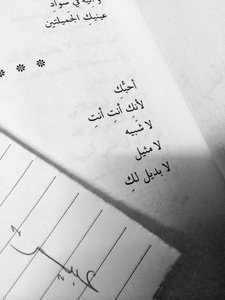 في سواد
عينيكِ الجميلتين
* * *
أحبُّكِ
لأنكِ أنتِ أنتِ
لا شبيه
لا مثيل
لا بديل لكِ